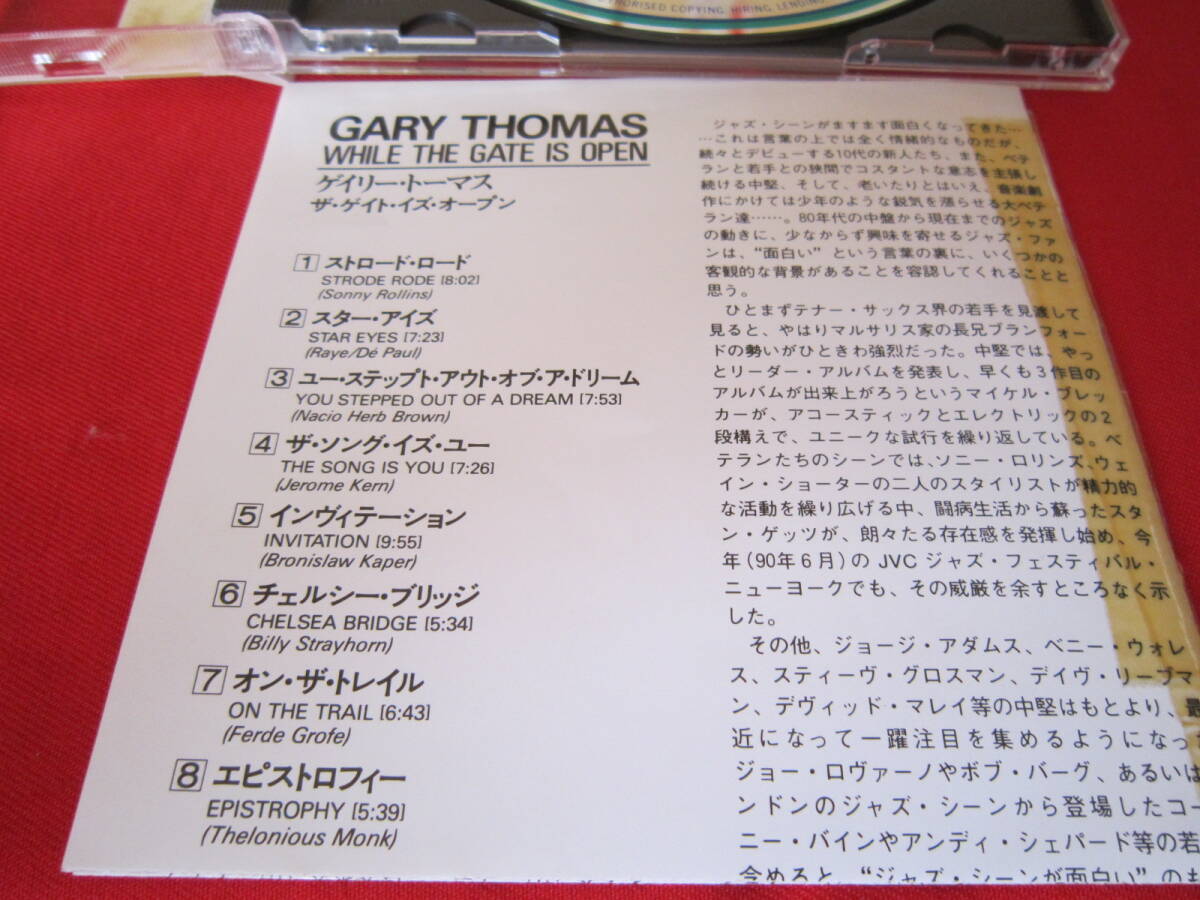 UNAUTHORISED COPYING, HIRING, LENDING,
GARY THOMAS
WHILE THE GATE IS OPEN
ゲイリー・トーマス
ザ・ゲイト・イズ・オープン
1 ストロード・ロード
STRODE RODE [8:02]
(Sonny Rollins)
2 スター・アイズ
STAR EYES [7:23]
(Raye/Dé Paul)
3 ユー・ステップト・アウト・オブ・ア・ドリーム
YOU STEPPED OUT OF A DREAM [7:53]
(Nacio Herb Brown)
4 ザ・ソング・イズ・ユー
THE SONG IS YOU [7:26]
(Jerome Kern)
5 インヴィテーション
INVITATION [9:55]
(Bronislaw Kaper)
6 チェルシー・ブリッジ
CHELSEA BRIDGE [5:34]
(Billy Strayhorn)
7 オン・ザ・トレイル
ON THE TRAIL [6:43]
(Ferde Grofe)
8 エピストロフィー
EPISTROPHY [5:39]
(Thelonious Monk)
ジャズ・シーンがますます面白くなってきた…
…これは言葉の上では全く情緒的なものだが、
続々とデビューする10代の新人たち、また、ベテ
ランと若手との狭間でコスタントな意志を主張し
続ける中堅、そして、老いたりとはいえ、音楽創
作にかけては少年のような鋭気を漲らせる大ベテ
ラン達……。80年代の中盤から現在までのジャズ
の動きに、少なからず興味を寄せるジャズ・ファ
ンは、“面白い”という言葉の裏に、いくつかの
客観的な背景があることを容認してくれることと
思う。
ひとまずテナー・サックス界の若手を見渡して
見ると、やはりマルサリス家の長兄ブランフォー
ドの勢いがひときわ強烈だった。中堅では、やっ
とリーダー・アルバムを発表し、早くも3作目の
アルバムが出来上がろうというマイケル・ブレッ
カーが、アコースティックとエレクトリックの2
段構えで、ユニークな試行を繰り返している。ベ
テランたちのシーンでは、ソニー・ロリンズ、ウェ
イン・ショーターの二人のスタイリストが精力的
な活動を繰り広げる中、闘病生活から蘇ったスタ
ン・ゲッツが、朗々たる存在感を発揮し始め、今
年(90年6月)のJVCジャズ・フェスティバル・
ニューヨークでも、その威厳を余すところなく示
した。
その他、ジョージ・アダムス、ベニー・ウォレ
ス、スティーヴ・グロスマン、デイヴ・リーブマ
ン、デヴィッド・マレイ等の中堅はもとより、最
近になって一躍注目を集めるようになった
ジョー・ロヴァーノやボブ・バーグ、あるいは
ンドンのジャズ・シーンから登場したコー
ニー・バインやアンディ・シェパード等の若
含めると、“ジャズ・シーンが面白い”のも